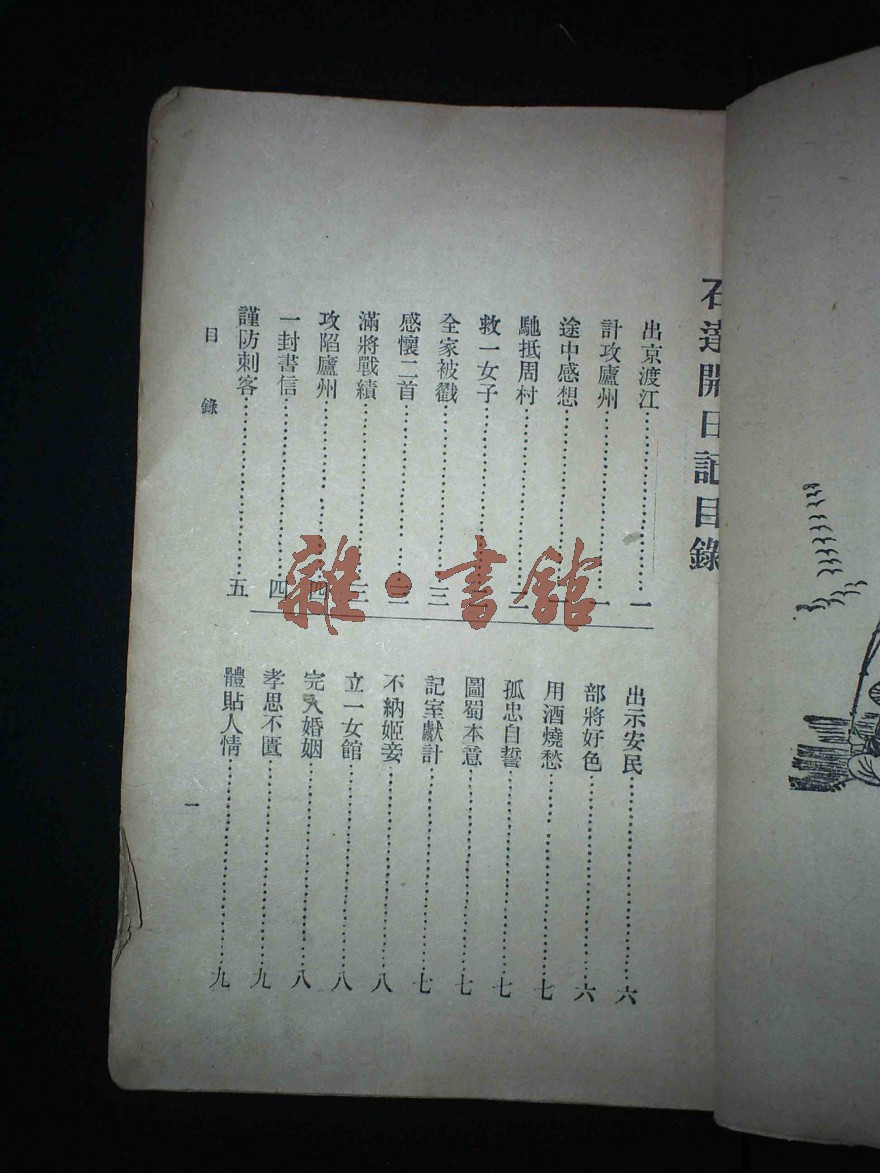 石達開日記目錄
出京渡江……一
計攻廬州……一
途中感想……一
馳抵周村……二
救一女子……二
全家被戮……三
感懷二首……三
滿將戰績……三
攻陷廬州……四
一封書信……四
謹防刺客……五
出示安民……六
部將好色……六
用酒燒愁……七
孤忠自誓……七
圖蜀本意……七
記室獻計……七
不納姬妾……八
立一女館……八
完人婚姻……八
孝思不匱……九
體貼人情……九
目錄
一
雜·書館